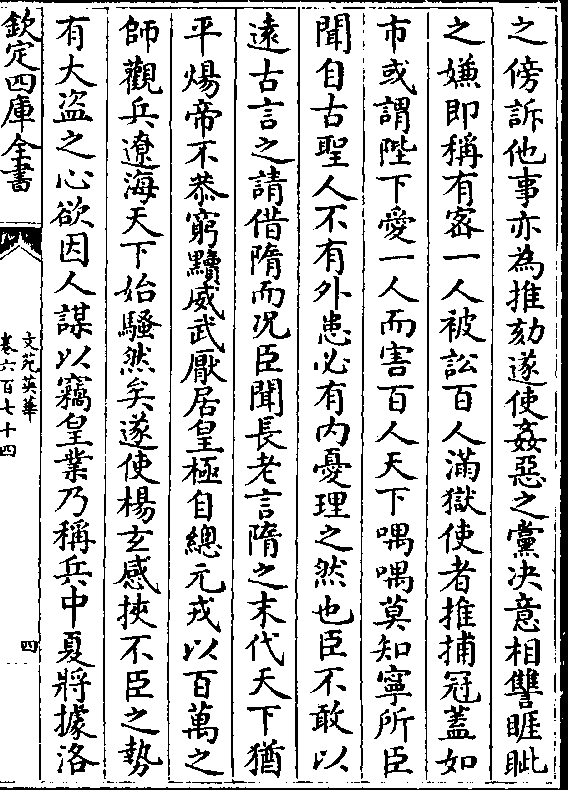 之傍訴他事亦為推劾遂使姦惡之黨决意相讐睚眦
之嫌即稱有宻一人被訟百人滿獄使者推捕冠蓋如
市或謂陛下愛一人而害百人天下喁喁莫知寧所臣
聞自古聖人不有外患必有内憂理之然也臣不敢以
逺古言之請借隋而况臣聞長老言隋之末代天下猶
平煬帝不恭窮黷威武厭居皇極自總元戎以百萬之
師觀兵遼海天下始騷然矣遂使楊玄感挾不臣之勢
有大盗之心欲因人謀以竊皇業乃稱兵中夏將據洛
欽定四庫全書
文苑英華
卷六百七十四
四